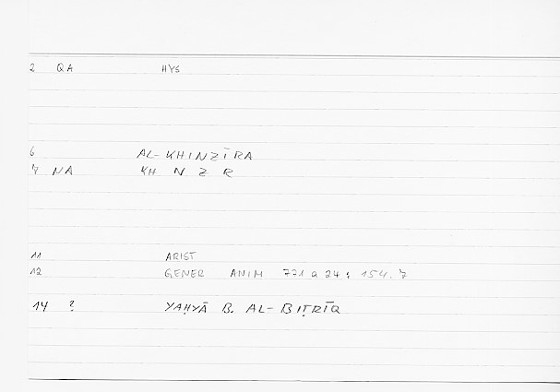 2 QA HYS
6 AL-KHINZĪRA
7 NA KH N Z R
11 ARIST
12 GENER ANIM 771 a 24 ; 154.7
14 ? YAḤYĀ B. AL-BIṬRĪQ